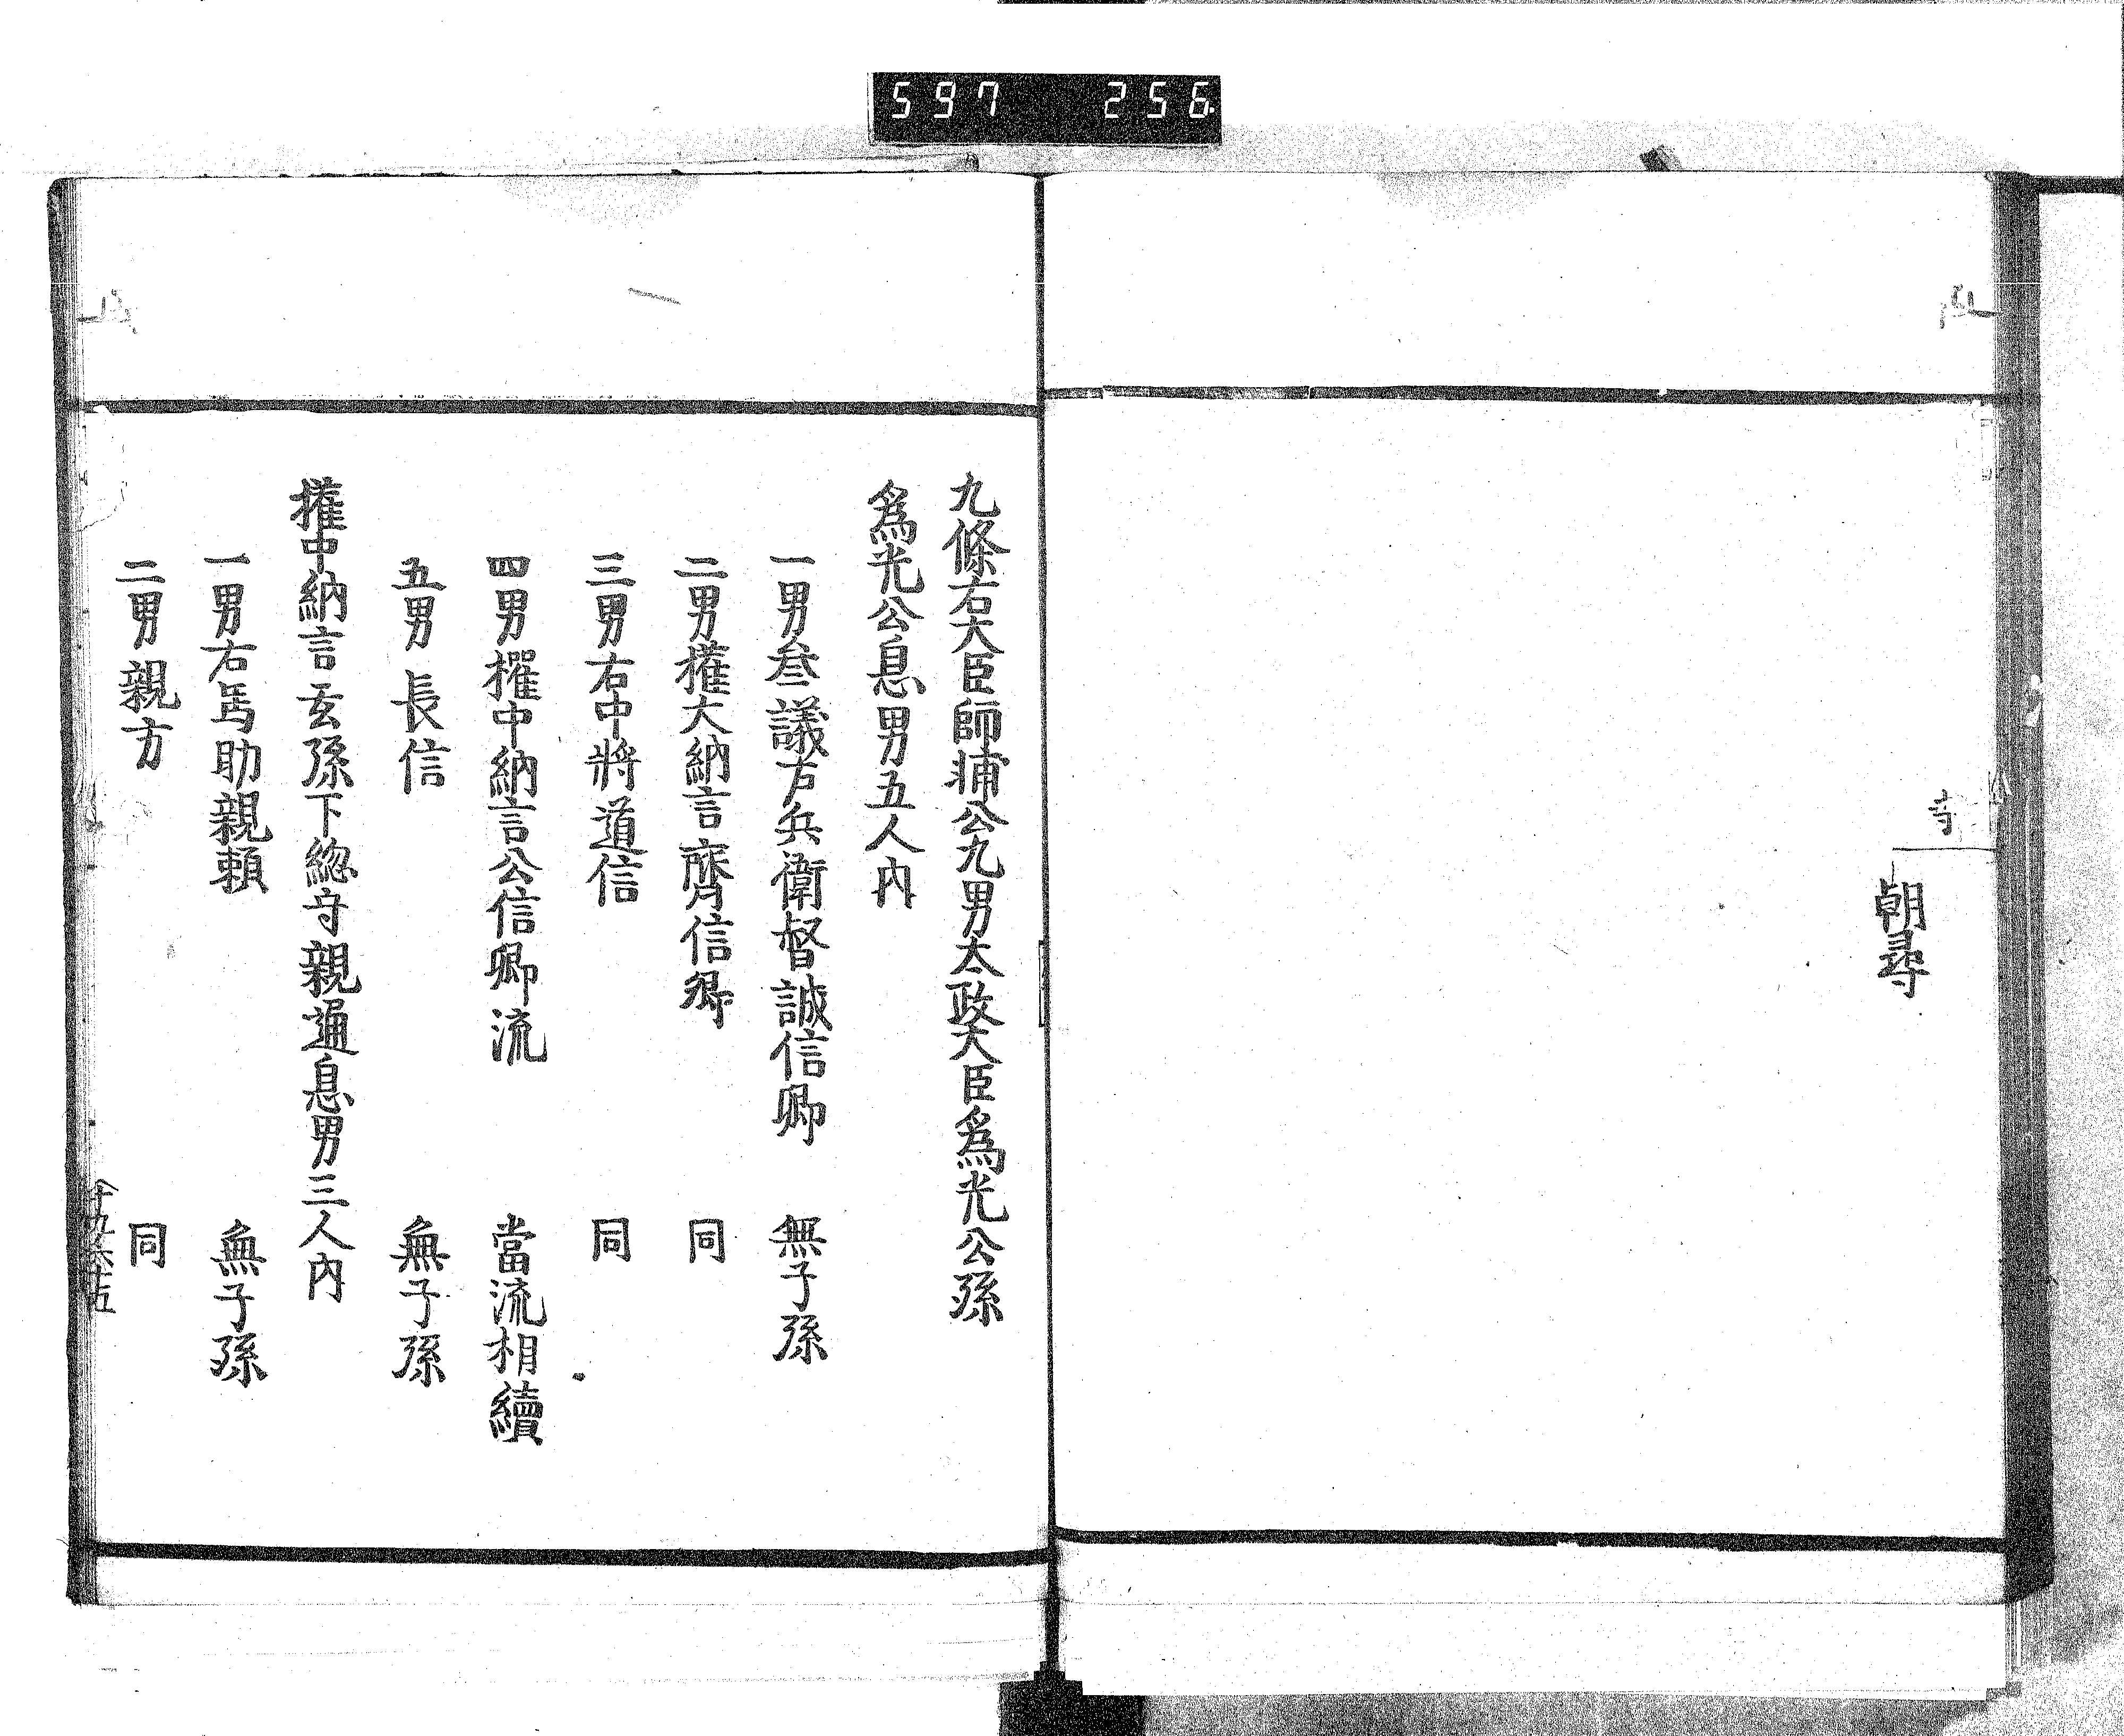 597 256
寺
朝尋
九條右大臣師輔公九男太政大臣爲光公孫
爲光公息男五人內
一男叅議左兵衛督誠信卿 無子孫
二男權大納言齊信卿 同
三男右中將道信 同
四男權中納言公信卿流 當流相續
五男長信 無子孫
權中納言玄孫下総守親通息男三人內
一男右馬助親賴 無子孫
二男親方 同